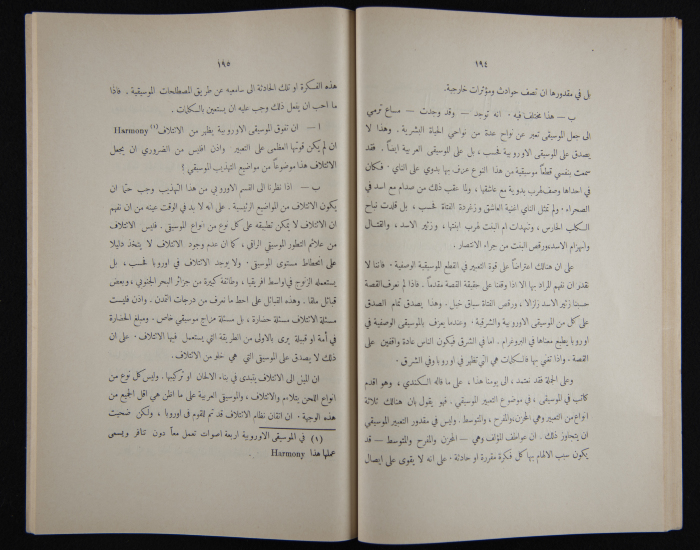 ١٩٤
بل في مقدورها ان تصف حوادث ومؤثرات خارجية.
ب — هذا مختلف فيه. انه توجد — وقد وجدت — مساع ترمي
الى جعل الموسيقى تعبر عن نواح عدة من نواحي الحياة البشرية. وهذا لا
يصدق على الموسيقى الاوروبية فحسب، بل على الموسيقى العربية ايضاً. فقد
سمعت بنفسي قطعاً موسيقية من هذا النوع عزف بها بدوي على الناي. فكان
في احداها وصف لهرب بدوية مع عاشقها، وما عقب ذلك من صدام مع اسد في
الصحراء. ولم تمثل الناي اغنية العاشق وزغردة الفتاة فحسب، بل قلدت نباح
الكلب الحارس، وتنهدات ام البنت لهرب ابنتها، وزئير الاسد، والقتال
وانهزام الاسد، ورقص البنت من جراء الانتصار.
على ان هنالك اعتراضاً على قوة التعبير في القطع الموسيقية الوصفية. فاننا لا
نقدر ان نفهم المراد بها الا اذا وقفنا على حقيقة القصة مقدماً. فاذا لم نعرف القصة
حسبنا زئير الاسد زلزالا، ورقص الفتاة سباق خيل. وهذا يصدق تمام الصدق
على كل من الموسيقى الاوروبية والشرقية. وعندما يعزف بالموسيقى الوصفية في
اوروبا يطبع معناها في البروغرام. اما في الشرق فيكون الناس عادة واقفين على
القصة. واذا تغنى بها فالكلمات هي التي تظهر في اوروبا وفي الشرق.
وعلى الجملة فقد نعتمد، الى يومنا هذا، على ما قاله الكندي، وهو اقدم
كاتب في الموسيقى، في موضوع التعبير الموسيقي. فهو يقول بان هنالك ثلاثة
انواع من التعبير وهي المحزن، والمفرح، والمتوسط. وليس في مقدور التعبير الموسيقي
ان يتجاوز ذلك. ان عواطف المؤلف وهي — المحزن والمفرح والمتوسط — قد
يكون سبب الالهام بها كل فكرة مقررة او حادثة. على انه لا يقوى على ايصال
١٩٥
هذه الفكرة او تلك الحادثة الى سامعيه عن طريق المصطلحات الموسيقية. فاذا
ما احب ان يفعل ذلك وجب عليه ان يستعين بالكلمات.
ا — ان تفوق الموسيقى الاوروبية يظهر من الائتلاف (١) Harmony
ان لم يكن قوتها العظمى على التعبير واذن افليس من الضروري ان يجعل
الائتلاف هذا موضوعاً من مواضيع التهذيب الموسيقي!
ب — اذا نظرنا الى القسم الاوروبي من هذا التهذيب وجب حتما ان
يكون الائتلاف من المواضيع الرئيسية. على انه لا بد في الوقت عينه من ان نفهم
ان الائتلاف لا يمكن تطبيقه على كل نوع من انواع الموسيقى. فليس الائتلاف
من علائم التطور الموسيقي الراقي، كما ان عدم وجود الائتلاف لا يتخذ دليلا
على انحطاط مستوى الموسيقى. ولا يوجد الائتلاف في اوروبا فحسب، بل
يستعمله الزنوج في اواسط افريقيا، وطائفة كبيرة من جزائر البحر الجنوبي، وبعض
قبائل ملقا. وهذه القبائل على احط ما نعرف من درجات التمدن. واذن فليست
مسئلة الائتلاف مسئلة حضارة، بل مسئلة مزاج موسيقي خاص. ومبلغ الحضارة
في أمة او قبيلة يرى بالاولى من الطريقة التي يستعمل فيها الائتلاف. على ان
ذلك لا يصدق على الموسيقى التي هي خلو من الائتلاف.
ان الميل الى الائتلاف يتبدى في بناء الالحان او تركيبها. وليس كل نوع من
انواع اللحن يتلاءم والائتلاف، والموسيقى العربية على ما اظن هي اقل الجميع من
هذه الوجهة. ان اتقان نظام الائتلاف قد تم للقوم في اوروبا، ولكن ضحيت
(١) في الموسيقى الاوروبية اربعة اصوات تعمل معاً دون تنافر ويسمى
عملها هذا Harmony